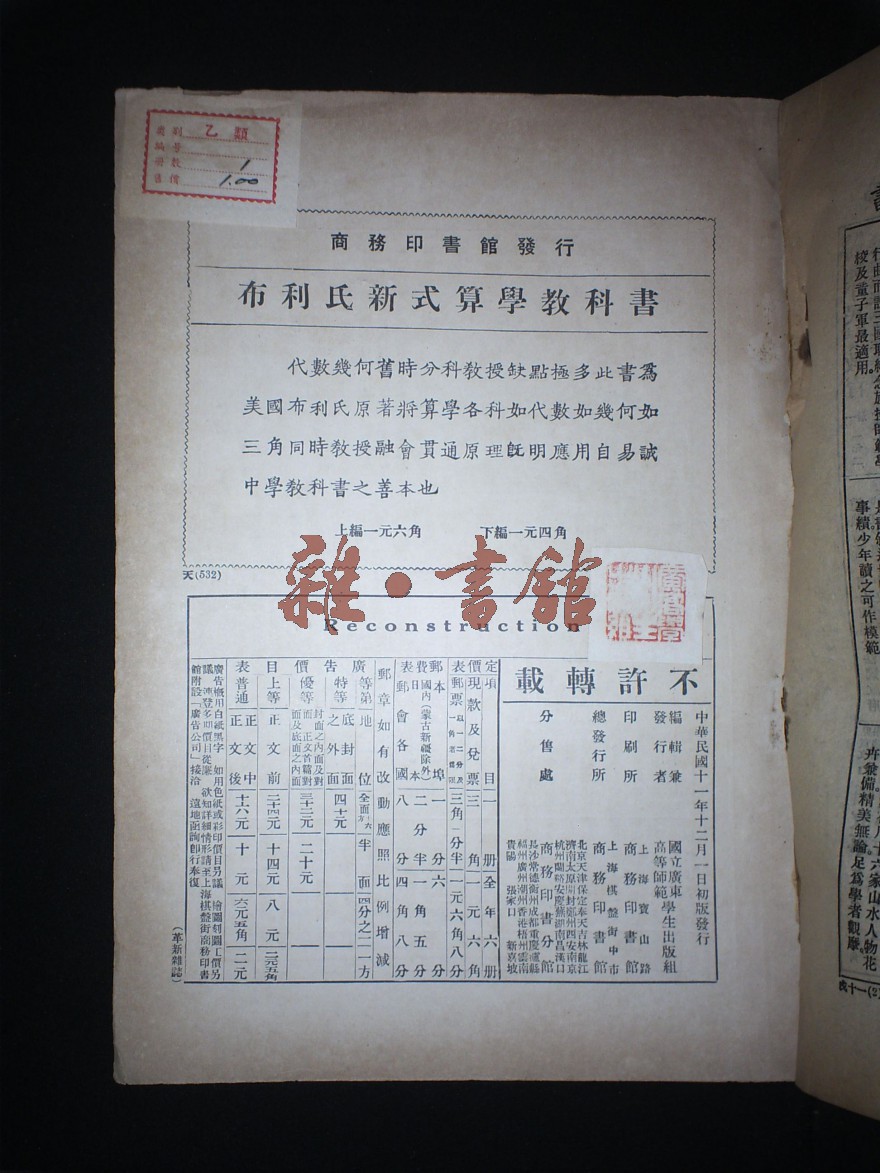 乙類
1
1.00
商務印書館發行
布利氏新式算學教科書
代數幾何舊時分科教授缺點極多此書爲
美國布利氏原著將算學各科如代數如幾何如
三角同時教授融會貫通原理旣明應用自易誠
中學教科書之善本也
上編一元六角 下編一元四角
天(532)
雜·書館
Reconstruction
不許轉載
中華民國十一年十二月一日初版發行
編輯兼發行者 國立廣東高等師範學生出版組
印刷所 上海寶山路 商務印書館
總發行所 上海棋盤街中市 商務印書館
分售處 商務印書分館
北京天津保定奉天吉林龍江
濟南太原開封鄭州西安南京
杭州蘭谿安慶蕪湖南昌漢口
長沙常德衡州成都重慶瀘縣
福州廣州潮州香港梧州雲南
貴陽 張家口 新嘉坡
定價表
項目 一册 全年六册
現款及兌票 三角 一元六角
郵票 三角一分半 一元六角八分
郵費表
本埠 一分 六分
國內(蒙古新疆除外) 日本 二分半 一角五分
郵會各國 八分 四角八分
郵章如有改動應照比例增減
廣告價目表
等第 地位 全面 半面 四分之一方
特等 底封面之外面 四十元
優等 封面之內面及對面 正文首篇對面及底面之內面 三十二元 二十元
上等 正文前 二十四元 十四元 八元 二元五角
普通 正文中 正文後 十六元 十元 六元五角 二元
廣告概用白紙黑字 如用色紙或彩印價目另議 繪圖刻圖工價另
議 連登多期價目從廉 欲知詳細情形請至上海棋盤街商務印書
館附設「廣告公司」接洽 遠地函詢卽行奉復
(革新雜誌)
校及童子軍最適用
事績少年讀之可作模範
家山水人物花
卉兼備精美無論足爲學者觀摩